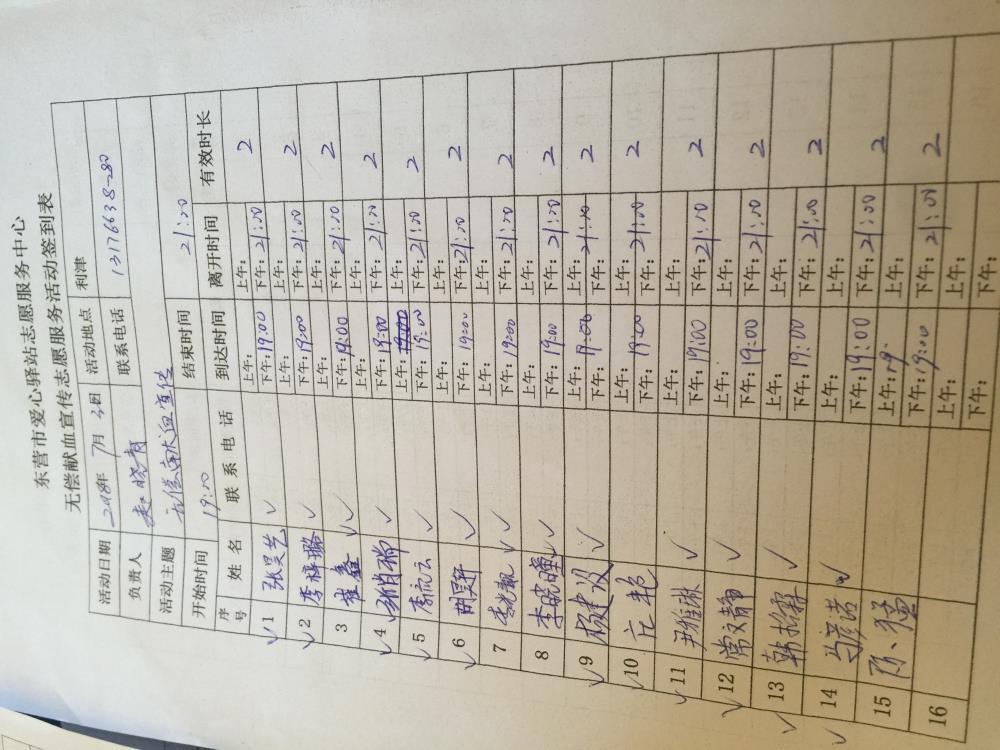 东营市爱心驿站志愿服务中心
无偿献血宣传志愿服务活动签到表
活动日期 2018年 7月 4日 活动地点 利津
负责人 赵晓青 联系电话
活动主题 无偿献血宣传
开始时间 19:00 结束时间 21:00
序号 姓名 联系电话 到达时间 离开时间 有效时长
1 张昊艺 ✓ 上午: 下午:19:00 上午: 下午:21:00 2
2 李梓璐 ✓ 上午: 下午:19:00 上午: 下午:21:00 2
3 崔鑫 ✓ 上午: 下午:19:00 上午: 下午:21:00 2
4 ✓ 上午: 下午:19:00 上午: 下午:21:00 2
5 李流云 ✓ 上午: 下午:19:00 上午: 下午:21:00 2
6 ✓ 上午: 下午:19:00 上午: 下午:21:00 2
7 ✓ 上午: 下午:19:00 上午: 下午:21:00 2
8 李晓曈 ✓ 上午: 下午:19:00 上午: 下午:21:00 2
9 杨建设 ✓ 上午: 下午:19:00 上午: 下午:21:00 2
10 上午: 下午:19:00 上午: 下午:21:00 2
11 尹维琳 ✓ 上午: 下午:19:00 上午: 下午:21:00 2
12 常文静 ✓ 上午: 下午:19:00 上午: 下午:21:00 2
13 韩 ✓ 上午: 下午:19:00 上午: 下午:21:00 2
14 马彦浩 ✓ 上午: 下午:19:00 上午: 下午:21:00 2
15 陈猛 上午: 下午:19:00 上午: 下午:21:00 2
16 上午: 下午: 上午: 下午: